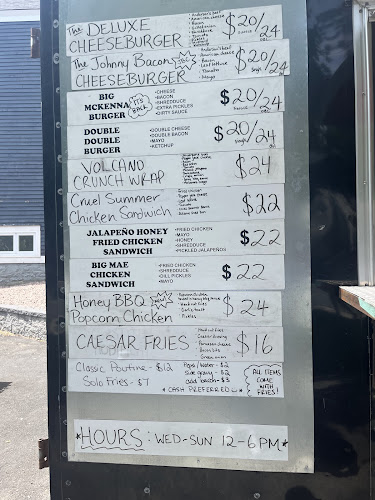 The DELUXE
CHEESEBURGER
$20/24
The Johnny Bacon
CHEESEBURGER
• Tomato
• Mayo
$20/24
BIG
MCKENNA
BURGER
IT'S
BACK
• CHEESE
• BACON
• SHREDDUCE
• EXTRA PICKLES
• DIRTY SAUCE
$20/24
DOUBLE
DOUBLE
BURGER
• DOUBLE CHEESE
• DOUBLE BACON
• MAYO
• KETCHUP
$20/24
VOLCANO
CRUNCH WRAP
$24
Cruel Summer
Chicken Sandwich
$22
JALAPEÑO HONEY
FRIED CHICKEN
SANDWICH
• FRIED CHICKEN
• MAYO
• HONEY
• SHREDDUCE
• PICKLED JALAPEÑOS
$22
BIG MAE
CHICKEN
SANDWICH
• FRIED CHICKEN
• SHREDDUCE
• DILL PICKLES
• MAYO
$22
Honey BBQ
Popcorn Chicken
$24
CAESAR FRIES
$16
Classic Poutine - $12
Solo Fries - $7
Pops/Water - $2
side gravy - $2
add bacon - $3
* CASH PREFERRED
ALL ITEMS
COME
WITH
FRIES!
*HOURS: WED-SUN 12-6PM*